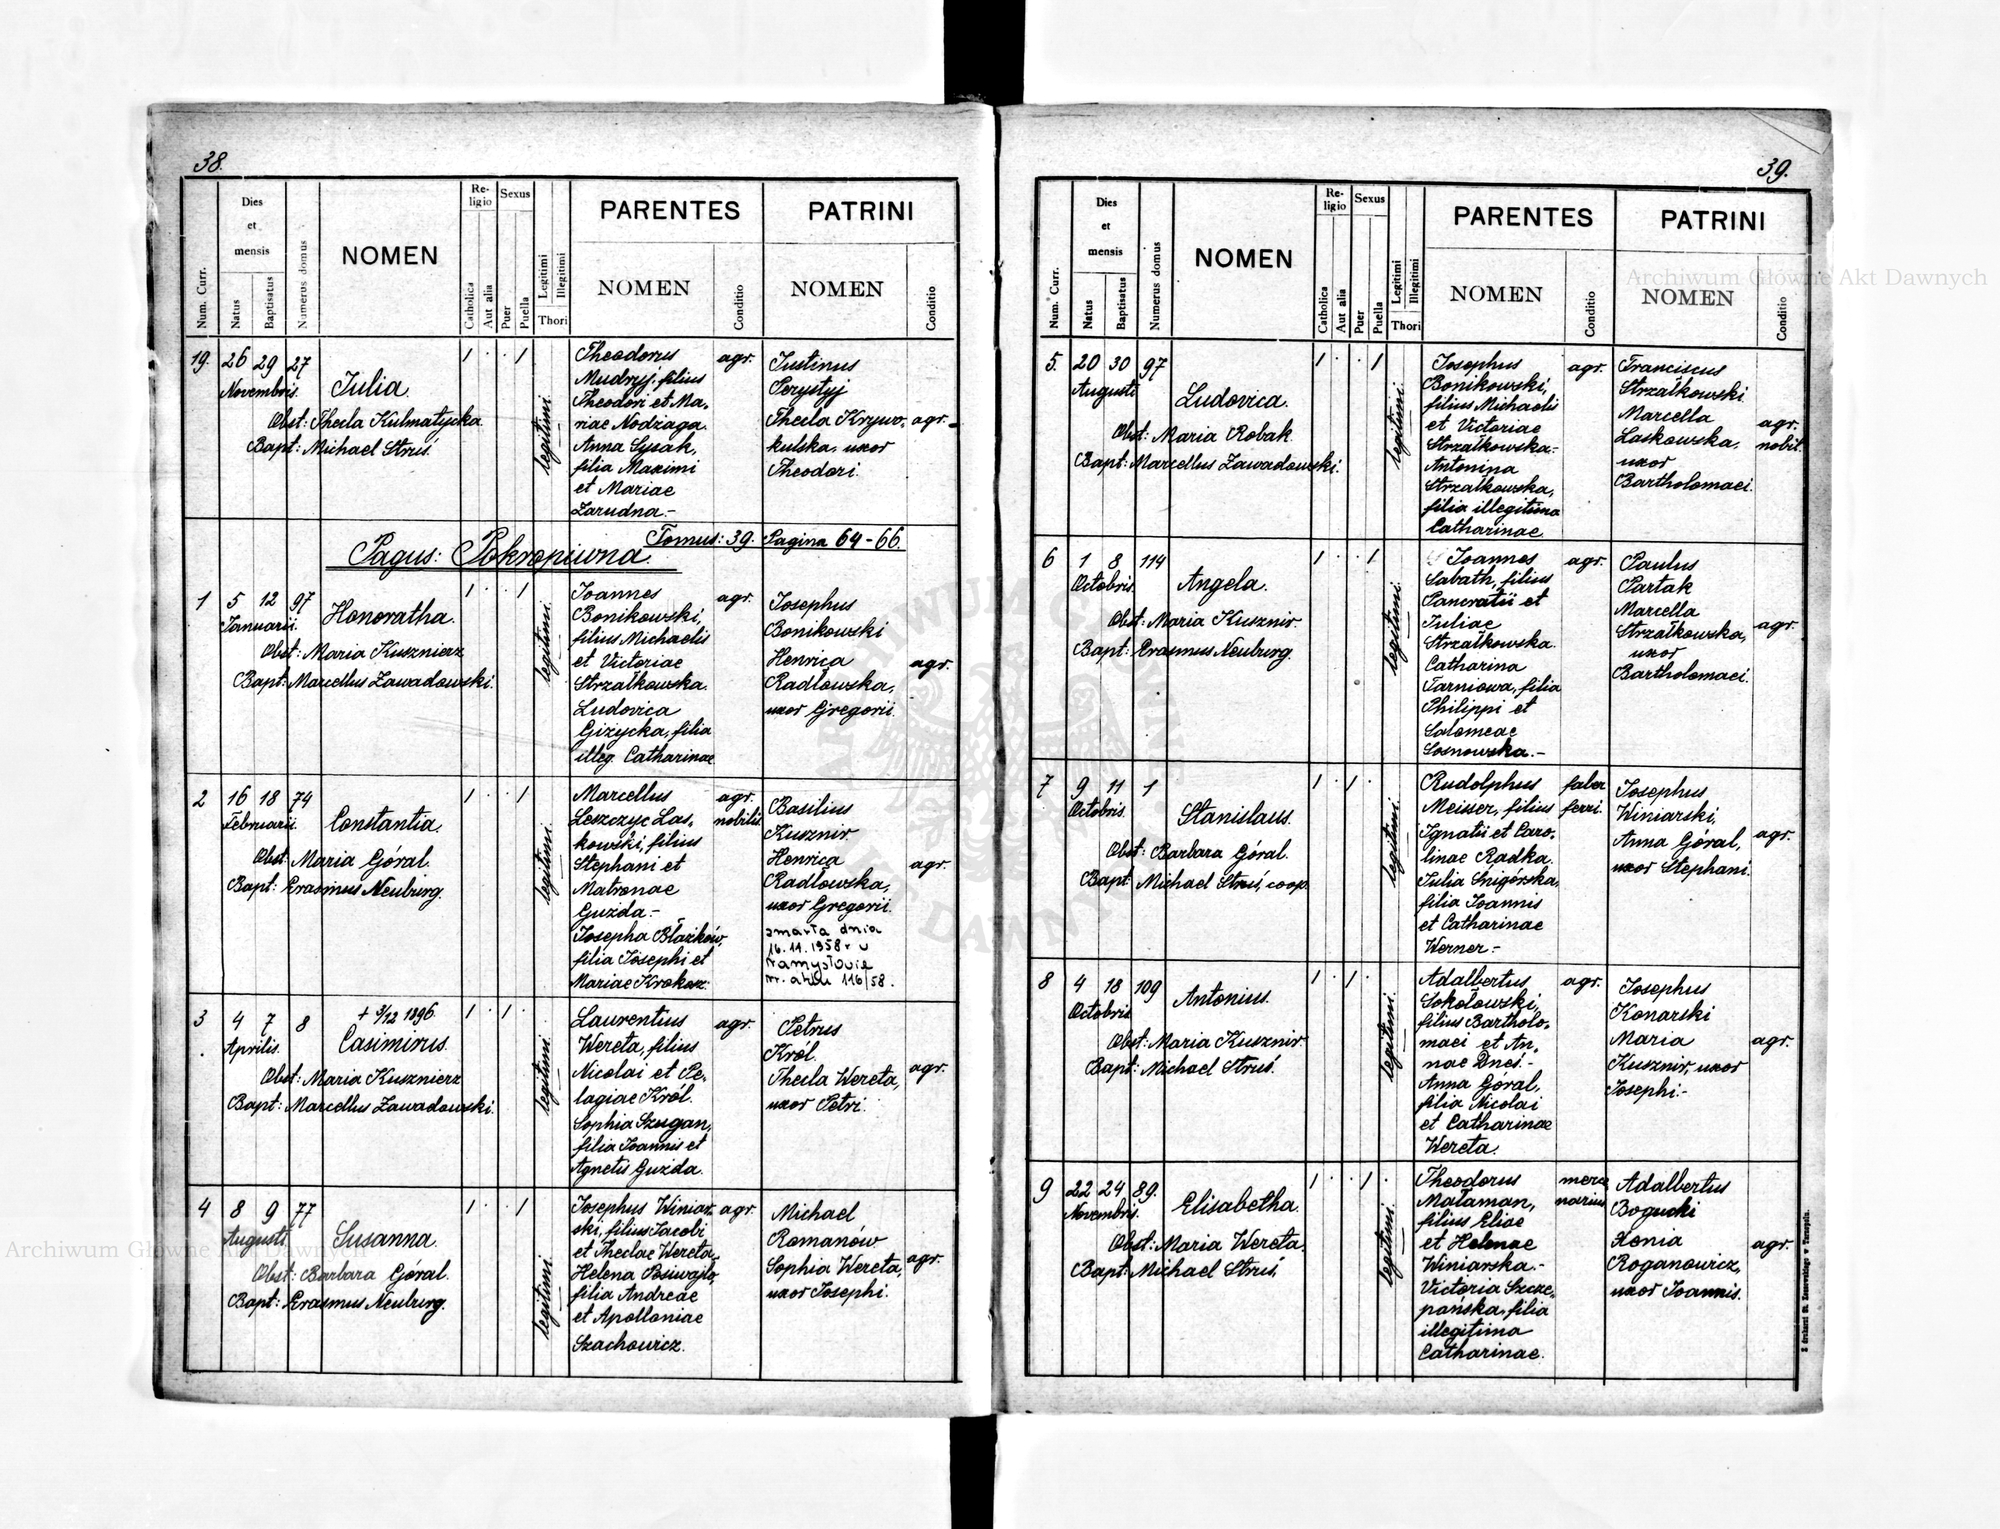 38.
Num. Curr.
Dies et mensis
Natus
Baptisatus
Numerus domus
NOMEN
Religio
Catholica
Aut alia
Sexus
Puer
Puella
Legitimi
Illegitimi
Thori
PARENTES
NOMEN
Conditio
PATRINI
NOMEN
Conditio
19. 26 29 27
Novembris.
Iulia.
Obst: Thecla Kulmatycka
Bapt: Michael Struś.
1 · · 1
legitimi.
Theodorus
Mudryj, filius
Theodori et Ma-
riae Nodzaga.
Anna Sysak,
filia Maximi
et Mariae
Zarudna.-
agr.
Iustinus
Perystyj
Thecla Krywo-
kulska, uxor
Theodori.
agr.
Pagus: Pokropiwna.
Tomus: 39. Pagina 64-66.
1 5 12 97
Ianuarii.
Honoratha.
Obst: Maria Kusznierz
Bapt: Marcellus Zawadowski.
1 · · 1
legitimi.
Ioannes
Bonikowski,
filius Michaelis
et Victoriae
Strzałkowska.
Ludovica
Giżycka, filia
illeg. Catharinae
agr.
Iosephus
Bonikowski
Henrica
Radlowska,
uxor Gregorii.
agr.
2 16 18 74
Februarii.
Constantia.
Obst: Maria Góral.
Bapt: Erasmus Neuburg.
1 · · 1
legitimi.
Marcellus
Leszczyc Las-
kowski, filius
Stephani et
Matronae
Guzda.-
Iosepha Błażków,
filia Iosephi et
Mariae Krokosz.
agr.
nobilis.
Basilius
Kusznir.
Henrica
Radlowska,
uxor Gregorii.
agr.
zmarła dnia
16.11.1958 r w
Namysłowie
nr. aktu 116/58.
3 4 7 8
Aprilis.
+ 9/12 1896.
Casimirus.
Obst: Maria Kusznierz
Bapt: Marcellus Zawadowski.
1 · 1 ·
legitimi.
Laurentius
Wereta, filius
Nicolai et Pe-
lagiae Król.
Sophia Szugan,
filia Ioannis et
Agnetis Guzda.
agr.
Petrus
Król.
Thecla Wereta,
uxor Petri.
agr.
4 8 9 77
Augusti.
Susanna.
Obst: Barbara Góral.
Bapt: Erasmus Neuburg.
1 · · 1
legitimi.
Iosephus Winiar-
ski, filius Iacobi
et Theclae Wereta.
Helena Posiwajło
filia Andreae
et Apolloniae
Szachowicz.
agr.
Michael
Romanów
Sophia Wereta,
uxor Iosephi.
agr.
39.
Num. Curr.
Dies et mensis
Natus
Baptisatus
Numerus domus
NOMEN
Religio
Catholica
Aut alia
Sexus
Puer
Puella
Legitimi
Illegitimi
Thori
PARENTES
NOMEN
Conditio
PATRINI
NOMEN
Conditio
5. 20 30 97
Augusti
Ludovica.
Obst: Maria Robak.
Bapt: Marcellus Zawadowski.
1 · · 1
legitimi.
Iosephus
Bonikowski,
filius Michaelis
et Victoriae
Strzałkowska.-
Antonina
Strzałkowska,
filia illegitima
Catharinae.
agr.
Franciscus
Strzałkowski.
Marcella
Laskowska,
uxor
Bartholomaei.
agr.
nobil.
6 1 8 114
Octobris.
Angela.
Obst: Maria Kusznir.
Bapt: Erasmus Neuburg.
1 · · 1
legitimi.
Ioannes
Sabath, filius
Pancratii et
Iuliae
Strzałkowska.
Catharina
Tarniowa, filia
Philippi et
Salomeae
Sosnowska.-
agr.
Paulus
Partak
Marcella
Strzałkowska,
uxor
Bartholomaei.
agr.
7 9 11 1
Octobris.
Stanislaus.
Obst: Barbara Góral.
Bapt: Michael Struś, coop.
1 · 1 ·
legitimi.
Rudolphus
Meisser, filius
Ignatii et Caro-
linae Radka.
Iulia Snigórska,
filia Ioannis
et Catharinae
Werner.-
faber
ferri.
Iosephus
Winiarski,
Anna Góral,
uxor Stephani.
agr.
8 4 18 109
Octobris
Antonius.
Obst: Maria Kusznir.
Bapt: Michael Struś.
1 · 1 ·
legitimi.
Adalbertus
Sokołowski,
filius Bartholo-
maei et An-
nae Dneś.-
Anna Góral,
filia Nicolai
et Catharinae
Wereta.
agr.
Iosephus
Konarski
Maria
Kusznir, uxor
Iosephi.-
agr.
9 22 24 89.
Novembris.
Elisabetha.
Obst: Maria Wereta.
Bapt: Michael Struś.
1 · · 1 ·
legitimi.
Theodorus
Mataman,
filius Eliae
et Helenae
Winiarska.-
Victoria Szcze-
pańska, filia
illegitima
Catharinae.
merce
narius
Adalbertus
Bogucki
Xenia
Roganowicz,
uxor Ioannis.
agr.
Archiwum Główne Akt Dawnych
Archiwum Główne Akt Dawnych